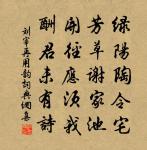 綠陽陶令宅
芳草謝家池
開徑應須我
酬君未有詩
劉宰再用韻詞典網集